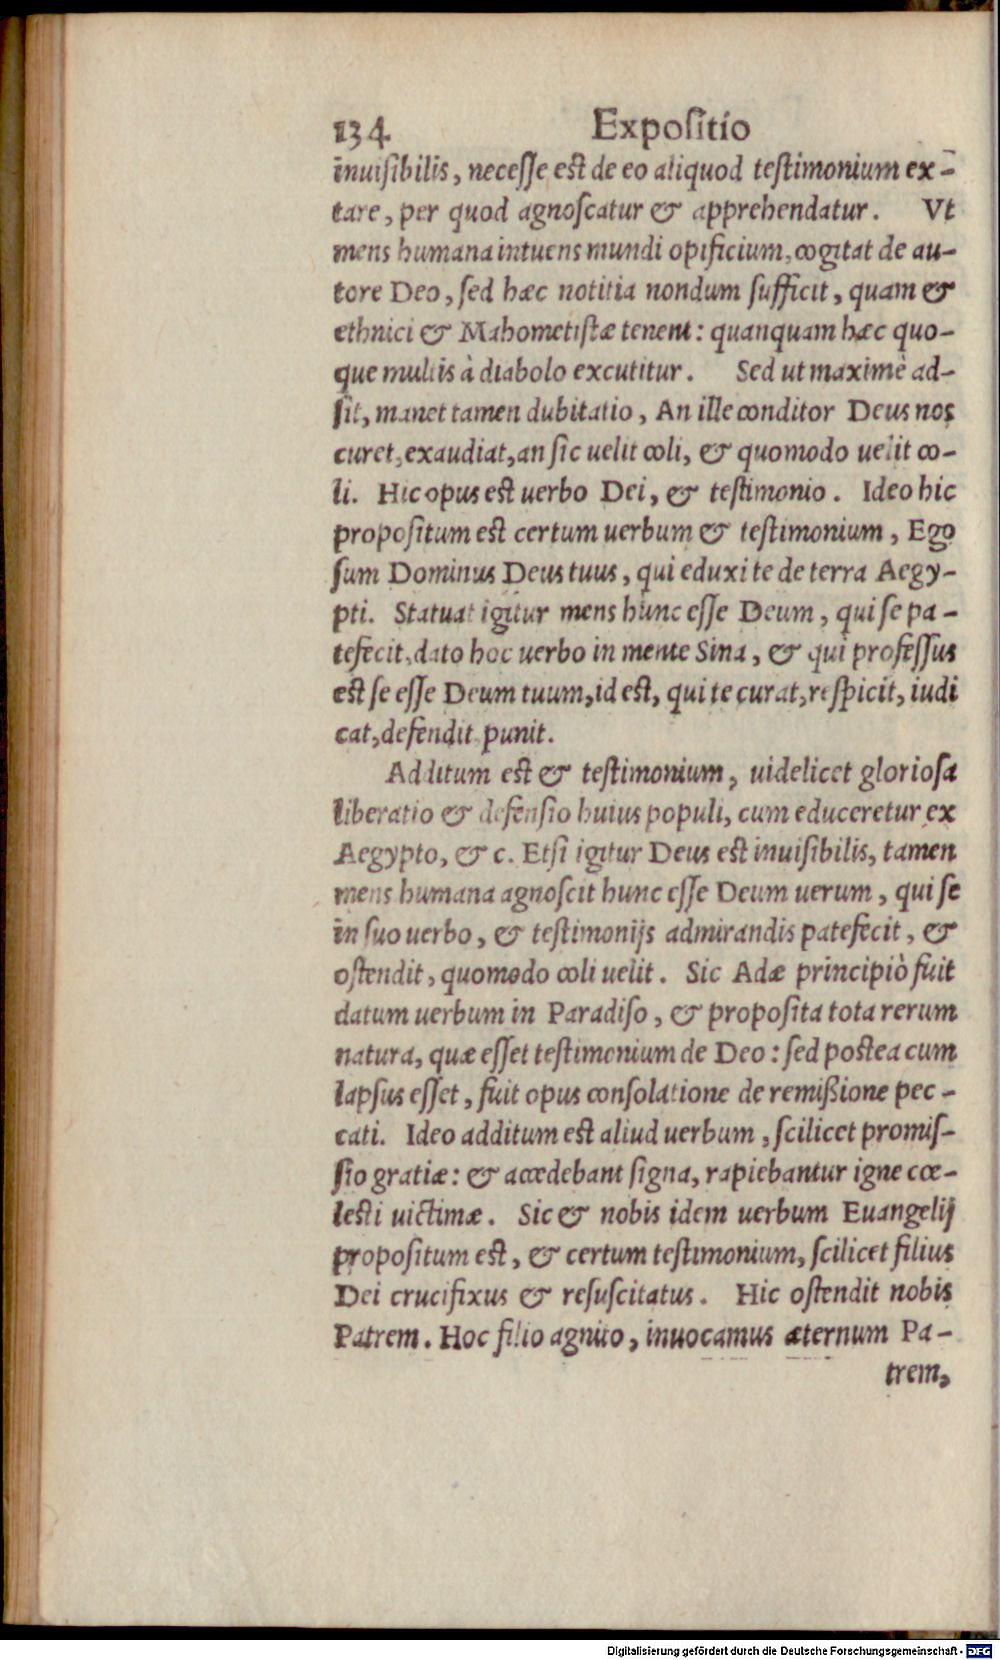 134 Expoſitio
inuiſibilis, neceſſe eſt de eo aliquod teſtimonium ex-
tare, per quod agnoſcatur & apprehendatur. Vt
mens humana intuens mundi opificium, cogitat de au-
tore Deo, ſed hæc notitia nondum ſufficit, quam &
ethnici & Mahometiſtæ tenent: quanquam hæc quo-
que multis à diabolo excutitur. Sed ut maximè ad-
ſit, manet tamen dubitatio, An ille conditor Deus nos
curet, exaudiat, an ſic uelit coli, & quomodo uelit co-
li. Hic opus eſt uerbo Dei, & teſtimonio. Ideo hic
propoſitum eſt certum uerbum & teſtimonium, Ego
ſum Dominus Deus tuus, qui eduxi te de terra Aegy-
pti. Statuat igitur mens hunc eſſe Deum, qui ſe pa-
tefecit, dato hoc uerbo in monte Sina, & qui profeſſus
eſt ſe eſſe Deum tuum, id eſt, qui te curat, reſpicit, iudi
cat, defendit punit.
Additum eſt & teſtimonium, uidelicet glorioſa
liberatio & defenſio huius populi, cum educeretur ex
Aegypto, & c. Etſi igitur Deus eſt inuiſibilis, tamen
mens humana agnoſcit hunc eſſe Deum uerum, qui ſe
in ſuo uerbo, & teſtimonijs admirandis patefecit, &
oſtendit, quomodo coli uelit. Sic Adæ principiò fuit
datum uerbum in Paradiſo, & propoſita tota rerum
natura, quæ eſſet teſtimonium de Deo: ſed poſtea cum
lapſus eſſet, fuit opus conſolatione de remißione pec-
cati. Ideo additum eſt aliud uerbum, ſcilicet promiſ-
ſio gratiæ: & accedebant ſigna, rapiebantur igne cœ-
leſti uictimæ. Sic & nobis idem uerbum Euangelij
propoſitum eſt, & certum teſtimonium, ſcilicet filius
Dei crucifixus & reſuſcitatus. Hic oſtendit nobis
Patrem. Hoc filio agnito, inuocamus æternum Pa-
trem,
Digitalisierung gefördert durch die Deutsche Forschungsgemeinschaft - DFG